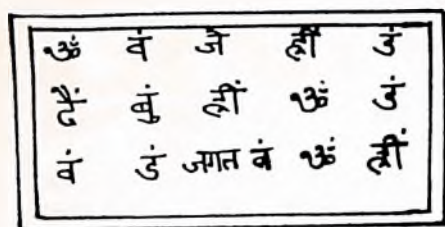 ॐ वं जे ह्रीं उं
दैं बुं ह्रीं ॐ उं
वं डं जगत बं ॐ ह्रीं